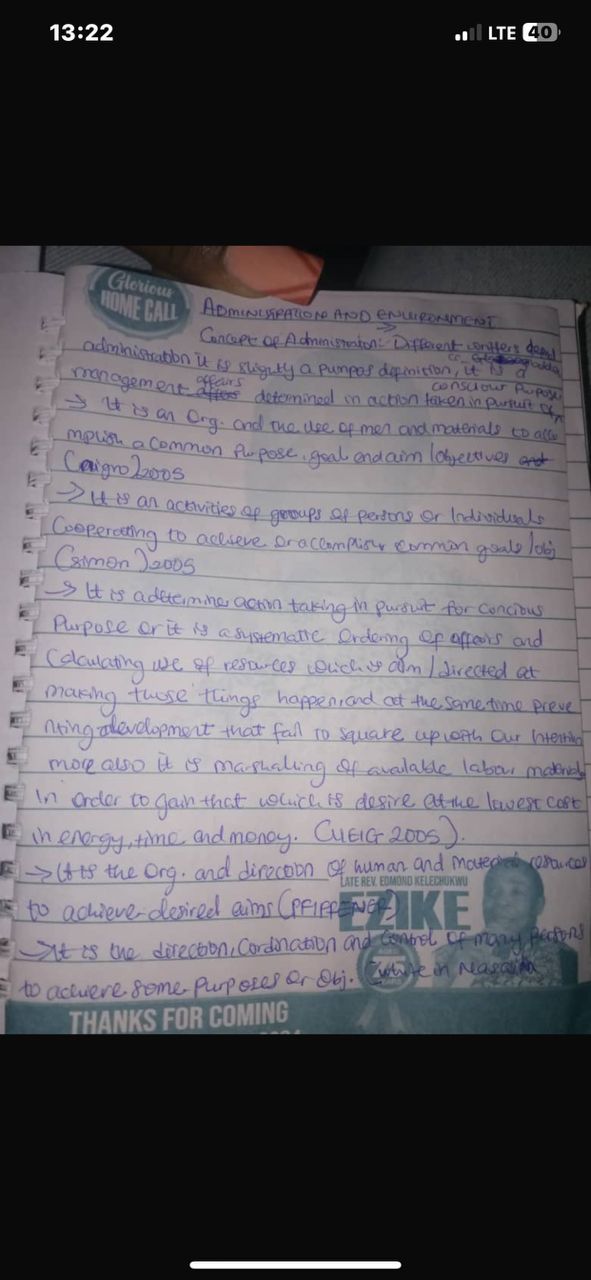 13:22
LTE 40
Glorious
HOME CALL
ADMINISTRATION AND ENVIRONMENT
Concept of Administration: Different writers
administration it is slightly a definition, it is a
management affairs determined in action taken in pursuit of
conscious purpose
→ It is an Org. and the use of men and materials to acco
mplish a Common Purpose, goal and aim /objectives and
2005
→ It is an activities of groups of persons or Individuals
Cooperating to achieve or accomplish common goals /obj
(Simon) 2005
→ It is a determine action taking in pursuit for concious
Purpose or it is a systematic Ordering of affairs and
Calculating use of resources which is aim / directed at
making those things happen and at the same time preve
nting development that fail to square up with our
more also it is marshaling of available labour materials
In order to gain that which is desire at the lowest cost
in energy, time and money. (UEIG 2005).
→ It is the Org. and direction of human and material resources
LATE REV. EDMOND KELECHUKWU
EZIKE
to achieve desired aims (PFIFFENER)
→ It is the direction, Cordination and Control of many persons
to achieve some Purposes or Obj. in
THANKS FOR COMING